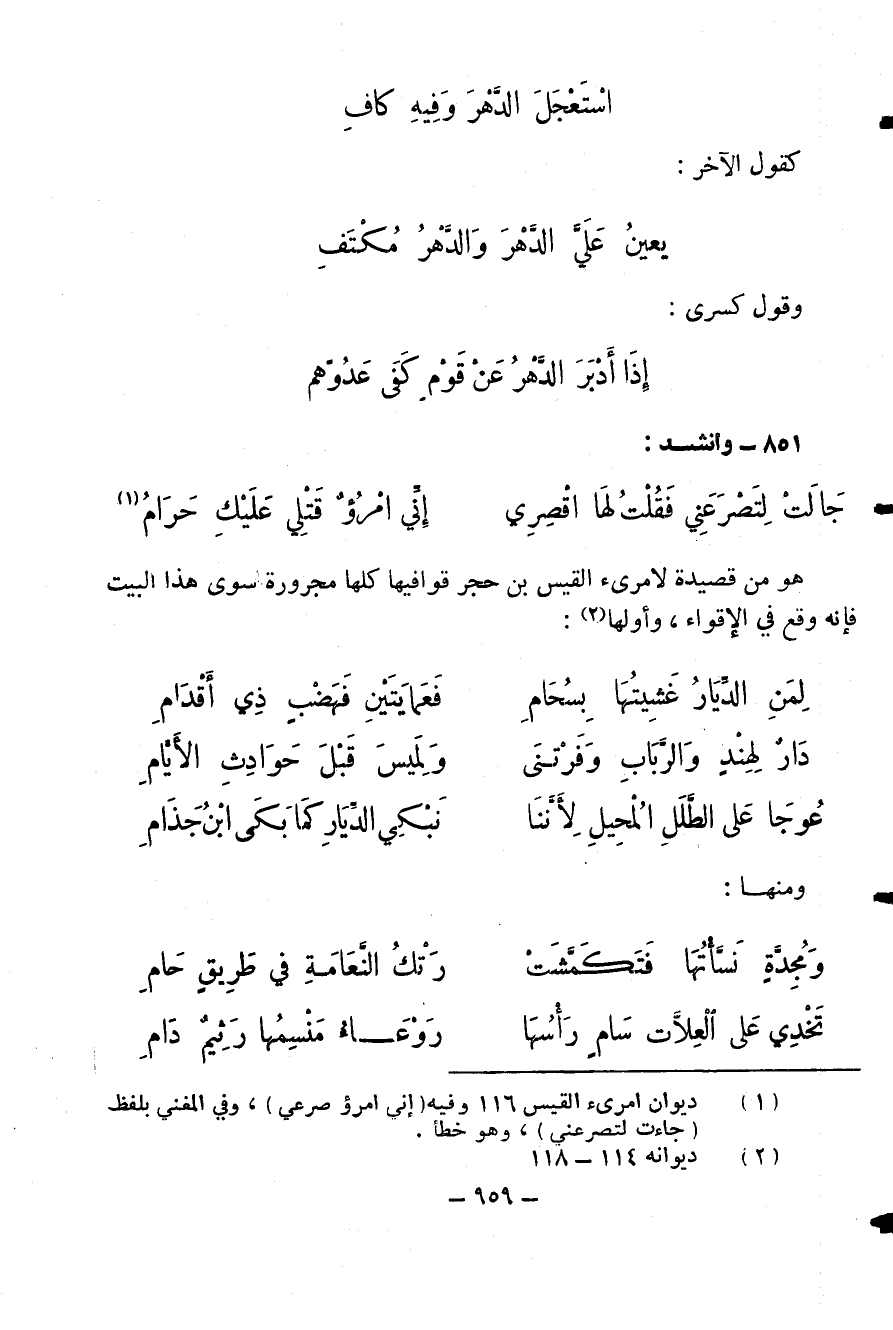 اسْتَعْجَلَ الدَّهْرَ وَفِيهِ كافِ
كقول الآخر :
يعينُ عَلَيَّ الدَّهْرَ وَالدَّهْرُ مُكْتَفِ
وقول كسرى :
إِذَا أَدْبَرَ الدَّهْرُ عَنْ قَوْمٍ كَفَى عَدُوّهم
٨٥١ ــ وانشــد :
جَالَتْ لِتَصْرَعَنِي فَقُلْتُ لهَا اقْصِرِي إِنِّي امْرُؤٌ قَتْلِي عَلَيْكِ حَرَامُ(١)
هو من قصيدة لامرىء القيس بن حجر قوافيها كلها مجرورة سوى هذا البيت
فإنه وقع في الإقواء ، وأولها(٢) :
لِمَنِ الدِّيَارُ غَشِيتُهَا بِسُحَامِ فَعَمَايَتَيْنِ فَهَضْبٍ ذِي أَقْدَامِ
دَارٌ لِهِنْدٍ وَالرَّبَابِ وَفَرْتـنَى وَلَمِيسَ قَبْلَ حَوَادِثِ الأَيَّامِ
عُوجَا عَلى الطَّلَلِ المُحِيلِ لِأَنَّنَا نَبْكِي الدِّيَارِ كمَا بَكَى ابْنُ جَذَامِ
ومنهــا :
وَمُجِدَّةٍ نَسَّأْتُهَا فَتَكَمَّشَتْ رَتْكُ النَّعَامَـةِ في طَرِيقٍ حَامِ
تَخْدِي عَلى الْعِلاَّت سَامٍ رَأْسُهَا رَوْعَــاءُ مَنْسِمُها رَثِيمٌ دَامِ
(١) ديوان امرىء القيس ١١٦ وفيه (إني امرؤ صرعي) ، وفي المغني بلفظ
(جاءت لتصرعني) ، وهو خطأ .
(٢) ديوانه ١١٤ ــ ١١٨
ــ ٩٥٩ ــ